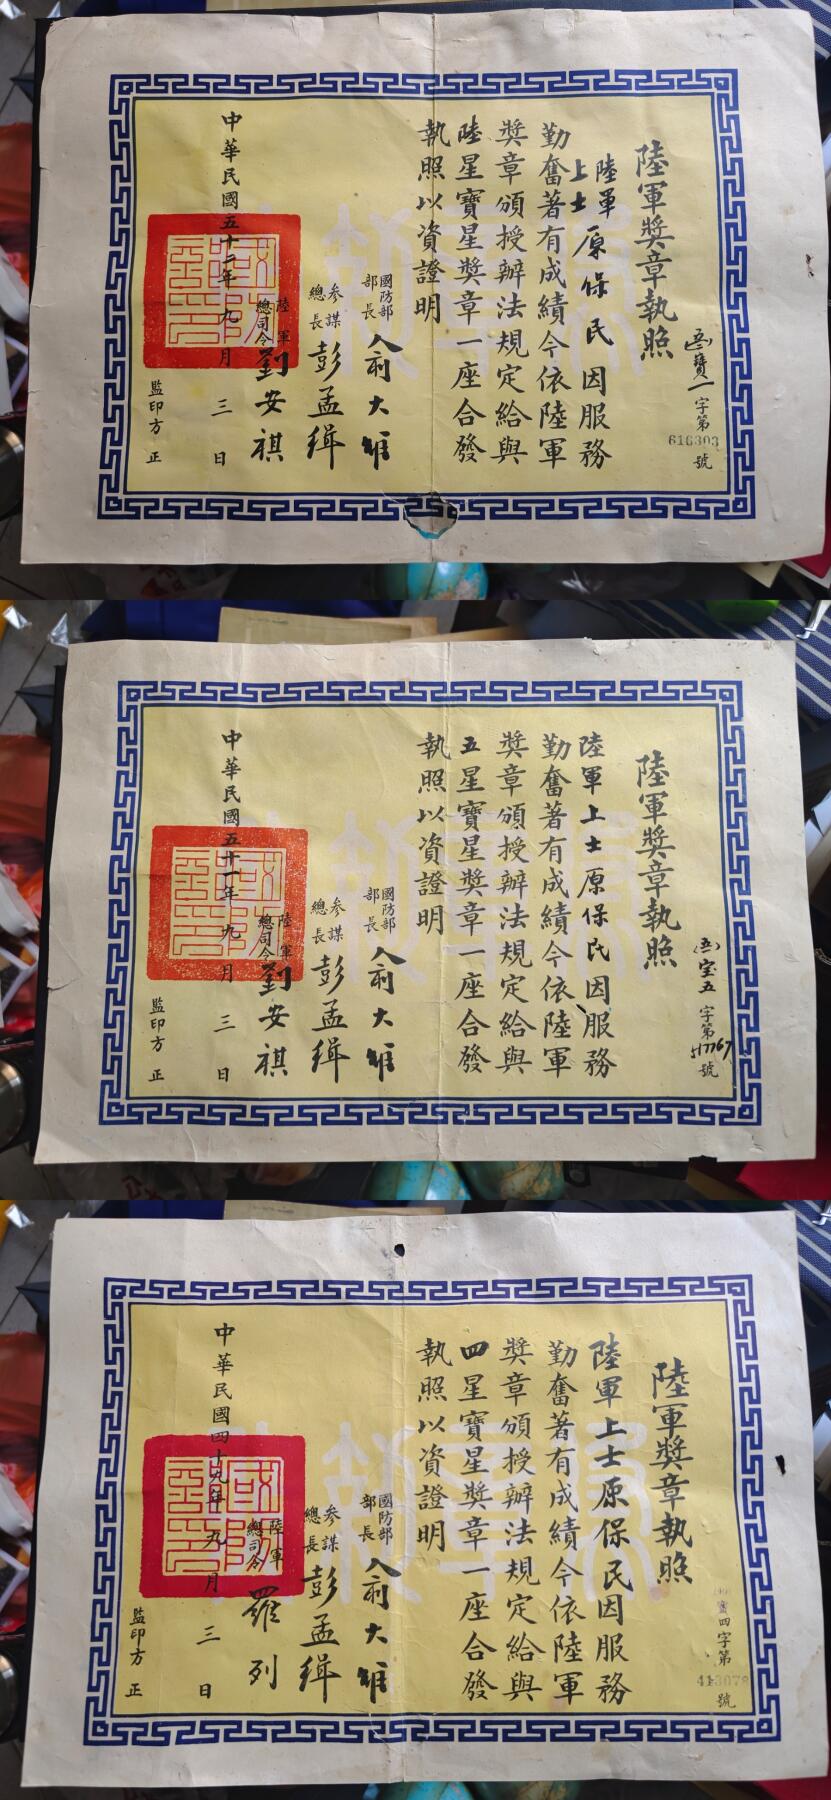 陸軍獎章執照
寶一字第616303號
陸軍
上士原保民因服務
勤奮著有成績今依陸軍
獎章頒授辦法規定給與
陸星寶星獎章一座合發
執照以資證明
國防部
部長俞大維
參謀
總長彭孟緝
陸軍
總司令劉安祺
中華民國五十二年九月三日
監印方正
陸軍獎章執照
宝五字第517767號
陸軍上士原保民因服務
勤奮著有成績今依陸軍
獎章頒授辦法規定給與
五星寶星獎章一座合發
執照以資證明
國防部
部長俞大維
參謀
總長彭孟緝
陸軍
總司令劉安祺
中華民國五十一年九月三日
監印方正
陸軍獎章執照
寶四字第413078號
陸軍上士原保民因服務
勤奮著有成績今依陸軍
獎章頒授辦法規定給與
四星寶星獎章一座合發
執照以資證明
國防部
部長俞大維
參謀
總長彭孟緝
陸軍
總司令羅列
中華民國四十九年九月三日
監印方正